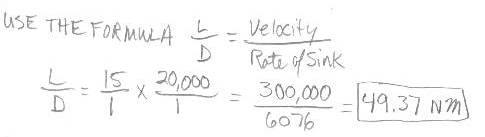 USE THE FORMULA L/D = Velocity/Rate of Sink
L/D = 15/1 x 20,000/1 = 300,000/6076 = 49.37 NM